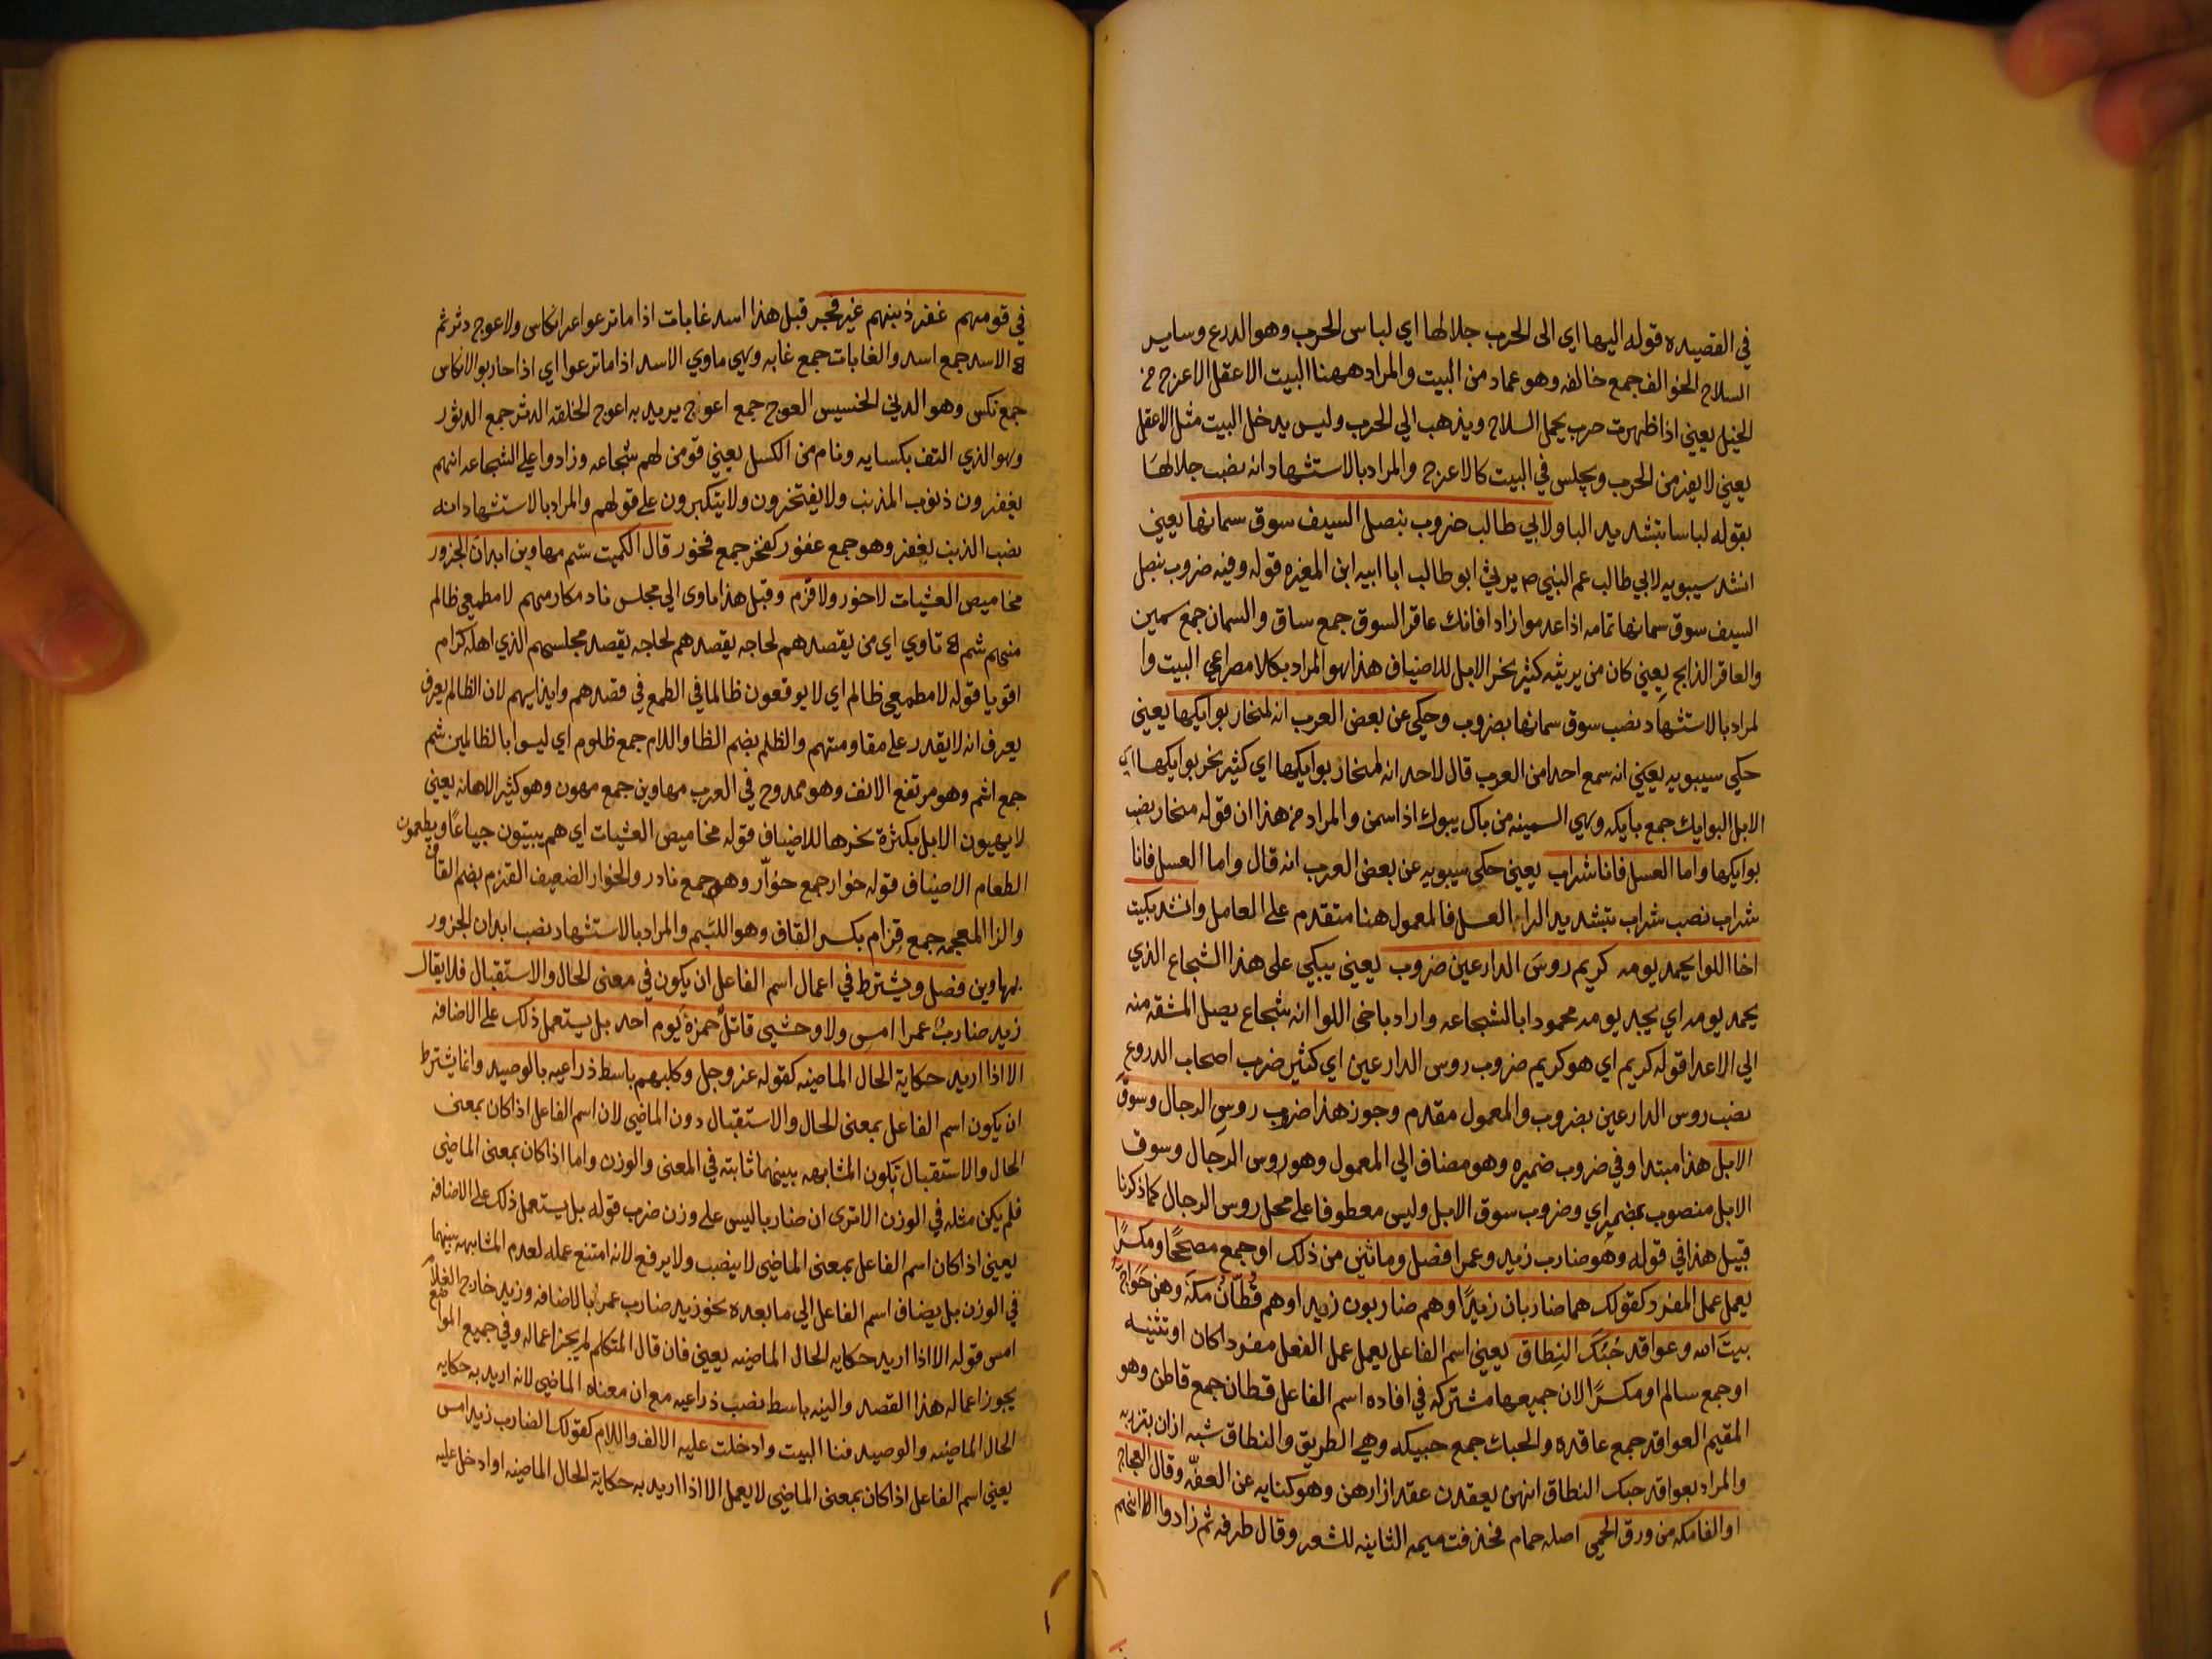 في القصيده قوله اليها اي الى الحرب جلالها اي لباس الحرب وهو الدرع وساير
السلاح الخوالف جمع خالفه وهو عماد من البيت والمراد ههنا البيت الاعقل الاعرج من
الخيل يعني اذا ظهرت حرب يحمل السلاح ويذهب الي الحرب وليس يدخل البيت مثل الاعقل
يعني لا يفر من الحرب ويجلس في البيت كالاعرج والمراد بالاستشهاد انه نصب جلالها
بقوله لباسا بتشديد البا ولابي طالب ضروب بنصل السيف سوق سمانها يعني
انشد سيبويه لابي طالب عم النبي ص يرثي ابو طالب ابا ابيه ابن المغيره قوله وفيه ضروب بنصل
السيف سوق سمانها تمامه اذا عدموا زادا فانك عاقر السوق جمع ساق والسمان جمع سمين
والعاقر الذابح يعني كان من يرثيه كثير نحر الابل للاضياف هذا هو المراد بكلا مصراعي البيت وا
لمراد بالاستشهاد نصب سوق سمانها بضروب وحكي عن بعض العرب انه لمنحار بوايكها يعني
حكي سيبويه يعني انه سمع احدا من العرب قال لاحد انه لمنحار بوايكها اي كثير نحر بوايكها اي
الابل البوايك جمع بايكه وهي السمينه من باك يبوك اذا سمن والمراد من هذا ان قوله منحار نصب
بوايكها واما العسل فانا شراب يعني حكي سيبويه عن بعض العرب انه قال واما العسل فانا
شراب نصب شراب بتشديد الراء العسل فالمعمول هنا متقدم على العامل وانشد بكيت
اخا اللوا يحمد يومه كريم روس الدارعين ضروب يعني يبكي على هذا الشجاع الذي
يحمد يومه اي يجد يومه محمودا بالشجاعه واراد باخي اللوا انه شجاع يصل المشقه منه
الي الاعدا قوله كريم اي هو كريم ضروب روس الدارعين اي كثير ضرب اصحاب الدروع
نصب روس الدارعين بضروب والمعمول مقدم وجوز هذا ضروب روس الرجال وسوق
الابل هذا مبتدا وفي ضروب ضميره وهو مضاف الي المعمول وهو روس الرجال وسوق
الابل منصوب بمضمر اي وضروب سوق الابل وليس معطوفا على محل روس الرجال كما ذكرنا
قبيل هذا في قوله وهو ضارب زيد وعمرا فصل وما ثني من ذلك او جمع مصححا ومكسرا
يعمل عمل المفرد كقولك هما ضاربان زيدا وهم ضاربون زيدا وهم قطان مكة وهن حواج
بيت الله وعواقد حبك النطاق يعني اسم الفاعل يعمل عمل الفعل مفردا كان او تثنيه
او جمع سالم او مكسرا لان جميعها مشتركه في افاده اسم الفاعل قطان جمع قاطن وهو
المقيم العواقد جمع عاقده والحبك جمع حبيكه وهي الطريق والنطاق شبه ازار
والمراد بعواقد حبك النطاق انهن يعقدن عقد ازارهن وهو كنايه عن العفه وقال العجاج
اوالفا مكه من ورق الحمي اصله حمام فحذفت ميمه الثانيه للشعر وقال طرفه ثم زادوا انهم
في قومهم غفر ذنبهم غير فجر قبل هذا اسد غابات اذا ما ترعوا غير انكاس ولا عوج دثر ثم
الاسد جمع اسد والغابات جمع غابه وهي ماوي الاسد اذا ما ترعوا اي اذا حاربوا الانكاس
جمع نكس وهو الدني الخسيس العوج جمع اعوج يريد به اعوج الخلقه الدثر جمع الدثور
وهو الذي التف بكسايه ونام من الكسل يعني قومن لهم شجاعه وزادوا علي الشجاعه انهم
يغفرون ذنوب المذنب ولا يفتخرون ولا يتكبرون على قولهم والمراد بالاستشهاد انه
نصب الذنب بغفر وهو جمع غفور كفخر جمع فخور قال الكميت شم مهاوين ابدان الجزور
مخاميص العشيات لا خور ولا قزم وقبل هذا ماوى الي مجلس ناد مكارمهم لا مطمعي ظالم
منهم شم تاوي اي من يقصدهم لحاجه يقصدهم لحاجه يقصد مجلسهم الذي اهله كرام
اقويا قوله لا مطمعي ظالم اي لا يوقعون ظالما في الطمع في قصدهم وايذايهم لان الظالم يعرف
يعرف انه لا يقدر على مقاومتهم والظلم بضم الظا واللام جمع ظلوم اي ليسوا بالظالمين شم
جمع اشم وهو مرتفع الانف وهو ممدوح في العرب مهاوين جمع مهون وهو كثير الاهانه يعني
لايهيون الابل بكثرة نحرها للاضياف قوله مخاميص العشيات اي هم يبيتون جياعا ويطعمون
الطعام الاضياف قوله خوار جمع خوار وهو جمع نادر والخوار الضعيف القزم بضم القاف
والزا المعجمه جمع قزام بكسر القاف وهو اللئيم والمراد بالاستشهاد نصب ابدان الجزور
بمهاوين فصل ويشترط في اعمال اسم الفاعل ان يكون في معنى الحال والاستقبال فلا يقال
زيد ضارب عمرا امس ولا وحشي قاتل حمزة يوم احد بل يستعمل ذلك على الاضافه
الا اذا اريد حكاية الحال الماضيه كقوله عز وجل وكلبهم باسط ذراعيه بالوصيد وانما يشترط
ان يكون اسم الفاعل بمعنى الحال والاستقبال دون الماضي لان اسم الفاعل اذا كان بمعنى
الحال والاستقبال تكون المشابهه بينهما ثابته في المعنى والوزن واما اذا كان بمعنى الماضي
فلم يكن مثله في الوزن الا ترى ان ضاربا ليس على وزن ضرب قوله بل يستعمل ذلك على الاضافه
يعني اذا كان اسم الفاعل بمعنى الماضي لا ينصب ولا يرفع لانه امتنع عمله لعدم المشابهه بينهما
في الوزن بل يضاف اسم الفاعل الي ما بعده نحو زيد ضارب عمر بالاضافه وزيد خادم الغلام
امس قوله الا اذا اريد حكايه الحال الماضيه يعني فان قال المتكلم لم يجز اعماله وفي جميع المواضع
يجوز اعماله هذا القصد والنيه باسط نصب ذراعيه مع ان معناه الماضي لانه اريد به حكايه
الحال الماضيه والوصيد فنا البيت وادخلت عليه الالف واللام كقولك الضارب زيدا امس
يعني اسم الفاعل اذا كان بمعنى الماضي لا يعمل الا اذا اريد به حكاية الحال الماضيه او ادخل عليه